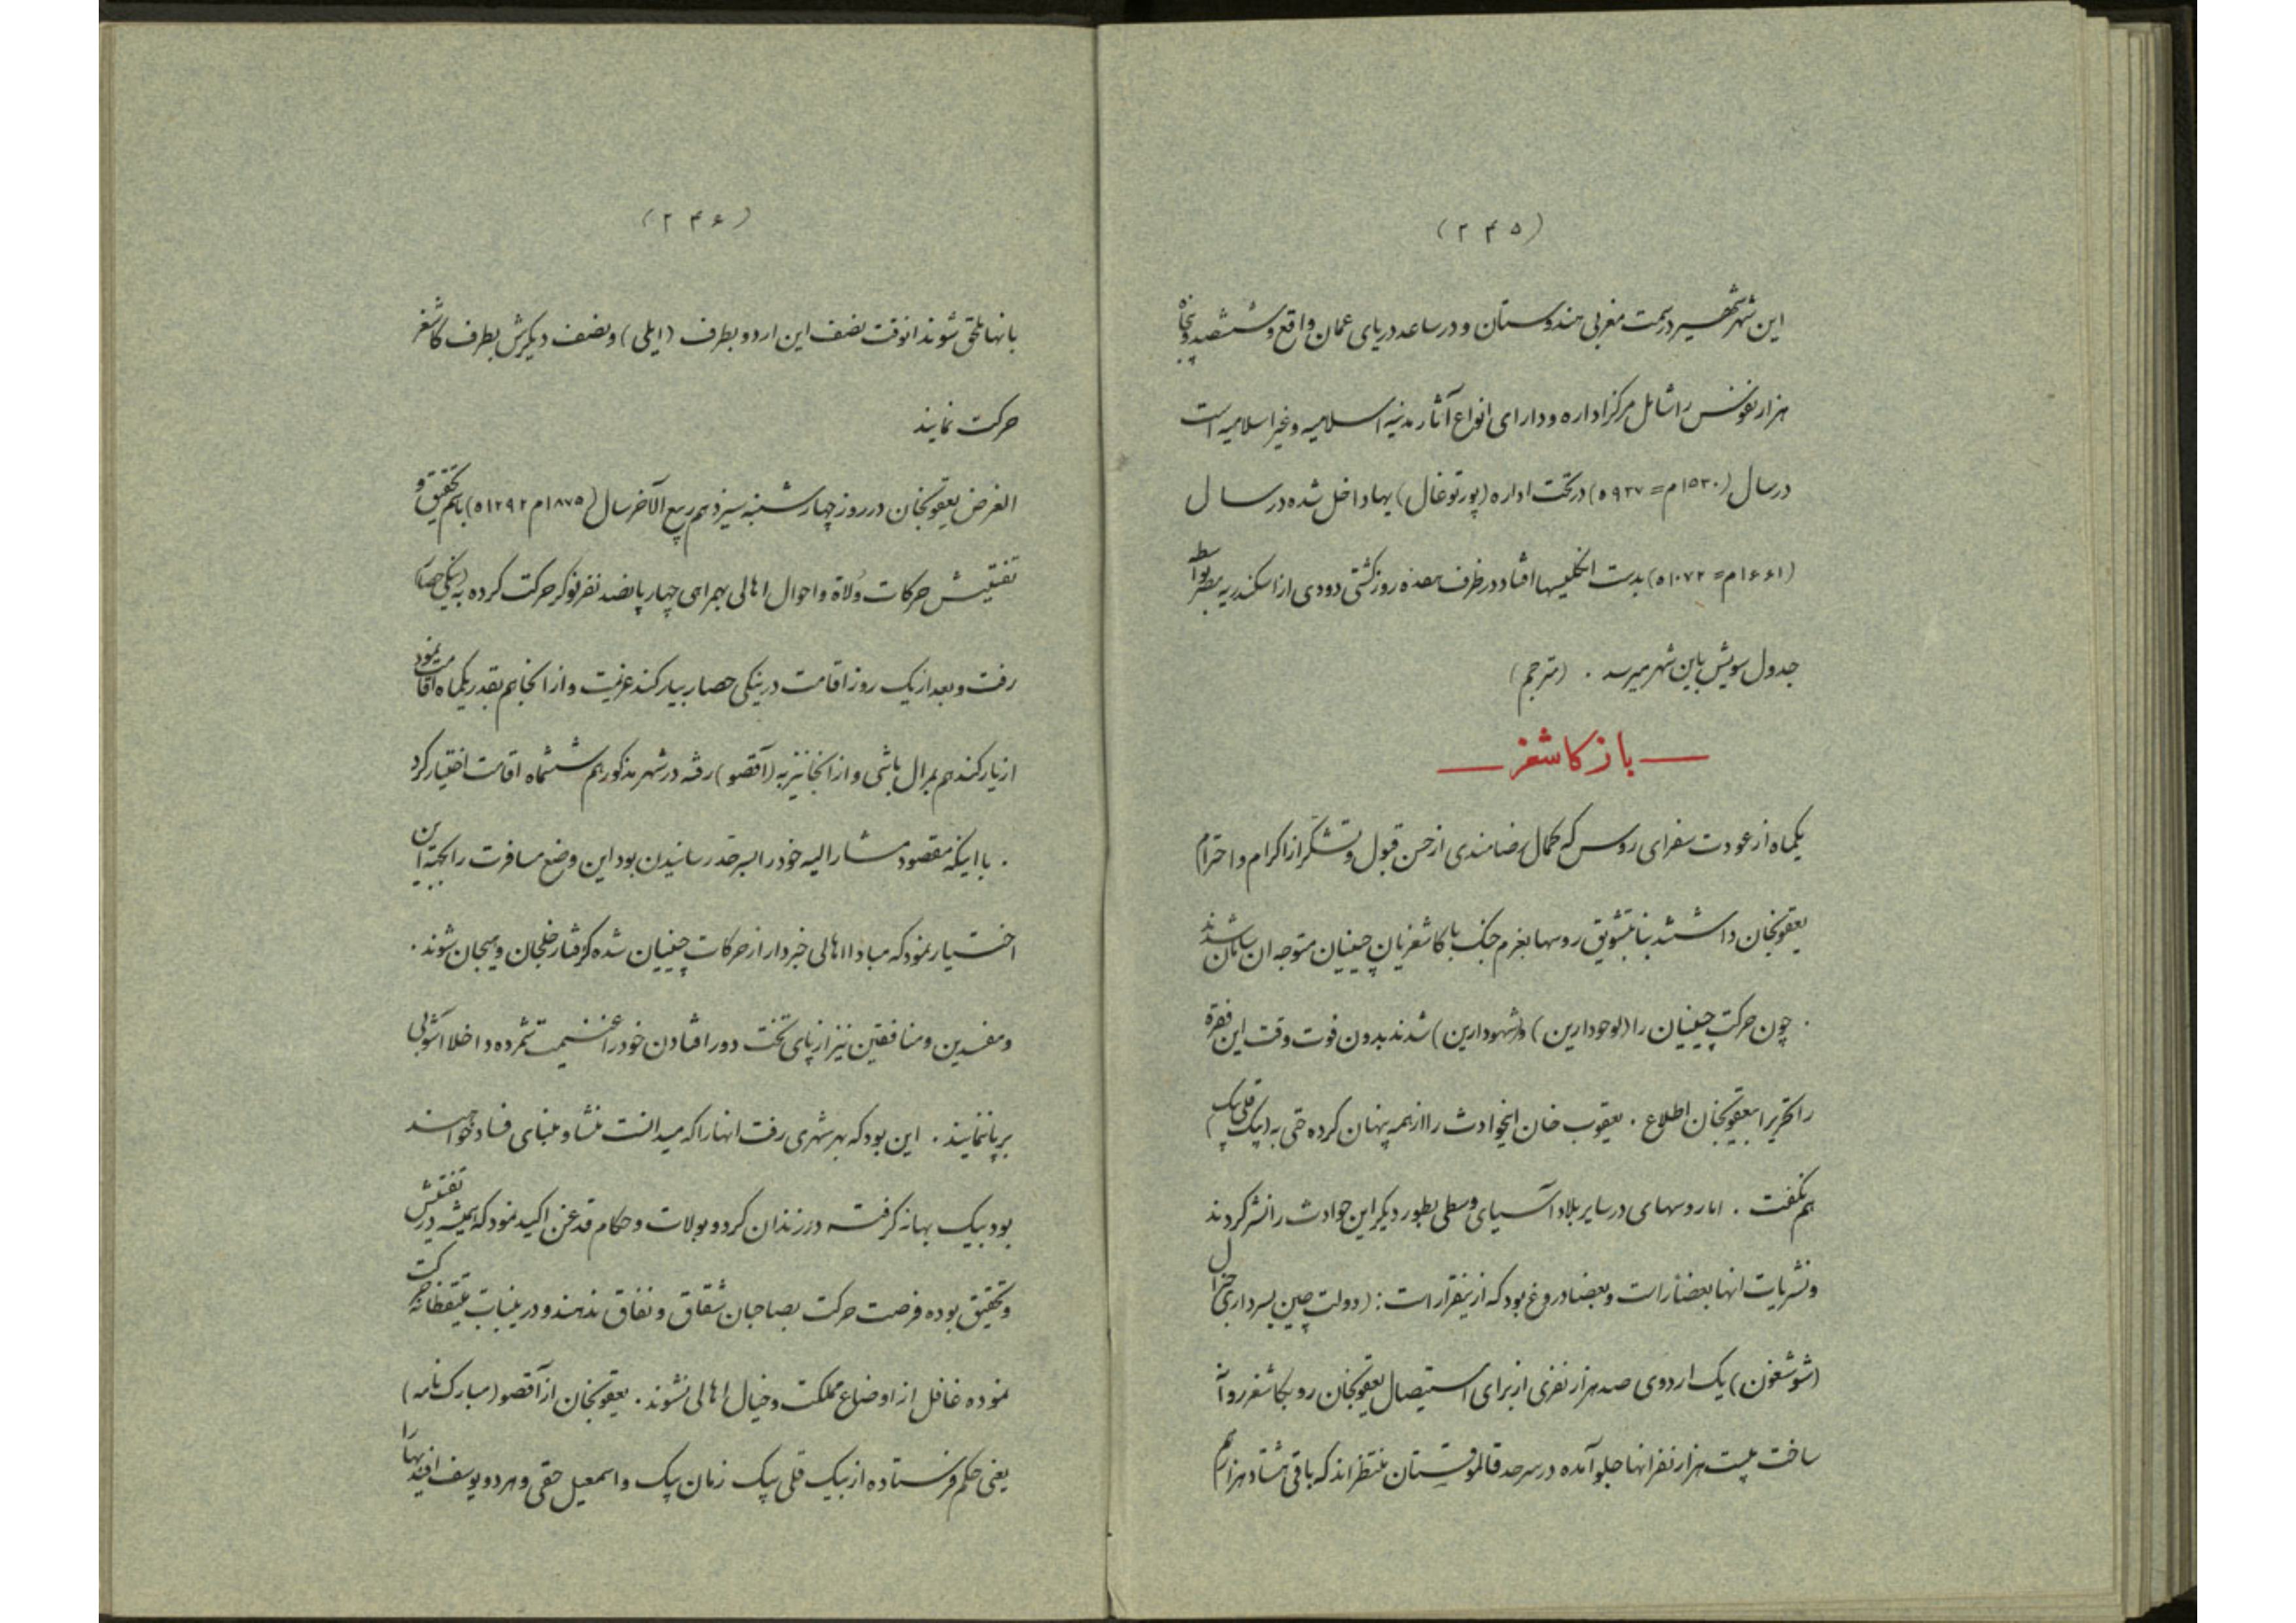 (۲۴۵)
این شهر شهیر در سمت مغربی هندوستان و در ساعد دریای عمان واقع و ششصد و پنجاه
هزار نفوس را شامل مرکز اداره و دارای انواع آثار مدنیه اسلامیه و غیر اسلامیه است
در سال (۱۵۳۰م = ۹۳۷ه) در تحت اداره (پورتوغال) یها داخل شده در سال
(۱۶۶۱م = ۱۰۷۲ه) بدست انگلیسها افتاد در ظرف هفده روز کشتی دودی از اسکندریه مصر بواسطه
جدول سویش باین شهر میرسد . (مترجم)
باز کاشغر
یکماه از عودت سفرای روس که کمال رضامندی از حسن قبول و تشکر از اکرام و احترام
یعقوبخان داشتند بنا بتشویق روسها بعزم جنگ با کاشغریان چینیان متوجه ان سامان شدند
. چون حرکت چینیان را (لوجودارین) و (شهودارین) شدند بدون فوت وقت این فقره
را تحریرا بیعقوبخان اطلاع . یعقوب خان اینحوادث را از همه پنهان کرده حتی به (بیک قلی بیک)
هم نگفت . اما روسهای در سایر بلاد آسیای وسطی بطور دیگر این حوادث را نشر کردند
و نشریات انها بعضا راست و بعضا دروغ بود که ازینقرار است : (دولت چین بسرداری جنرال
(شوشغون) یک اردوی صد هزار نفری از برای استیصال یعقوبخان رو بکاشغر روانه
ساخت بیست هزار نفر انها جلو آمده در سرحد قالموقستان منتظراند که باقی هشتاد هزار هم
(۲۴۶)
بانها ملحق شوند انوقت نصف این اردو بطرف (ایلی) و نصف دیگرش بطرف کاشغر
حرکت نمایند
الغرض یعقوبخان در روز چهارشنبه سیزدهم ربیع الآخر سال (۱۸۷۵م ۱۲۹۲ه) باسم تحقیق و
تفتیش حرکات وُلاة و احوال اهالی بهمراهی چهار پانصد نفر نوکر حرکت کرده به (ینگی حصار)
رفت و بعد از یک روز اقامت در ینگی حصار بیارکند عزیمت و از انجا هم بقدر یکماه اقامت نمود
از یارکند هم بمرال باشی و از انجا نیز به (آقصو) رفته در شهر مذکور هم ششماه اقامت اختیار کرد
. با اینکه مقصود مشارالیه خود را بسرحد رسانیدن بود این وضع مسافرت را بجهة این
اختیار نمود که مبادا اهالی خبردار از حرکات چینیان شده گرفتار خلجان و هیجان شوند .
و مفسدین و منافقین نیز از پای تخت دور افتادن خود را غنیمت شمرده داخلا آشوبی
برپا ننمایند . این بود که بهر شهری رفت انها را که میدانست منشاء و مبنای فساد خواهند
بود بیک بهانه گرفته در زندان کرد و بولات و حکام قدغن اکید نمود که همیشه در تفتیش
و تحقیق بوده فرصت حرکت بصاحبان شقاق و نفاق ندهند و درینباب متیقظانه حرکت
نموده غافل از اوضاع مملکت و خیال اهالی نشوند . یعقوبخان از آقصو (مبارک نامه)
یعنی حکم فرستاده از بیک قلی بیک زمان بیک و اسمعیل حقی و هر دو یوسف افندیها را